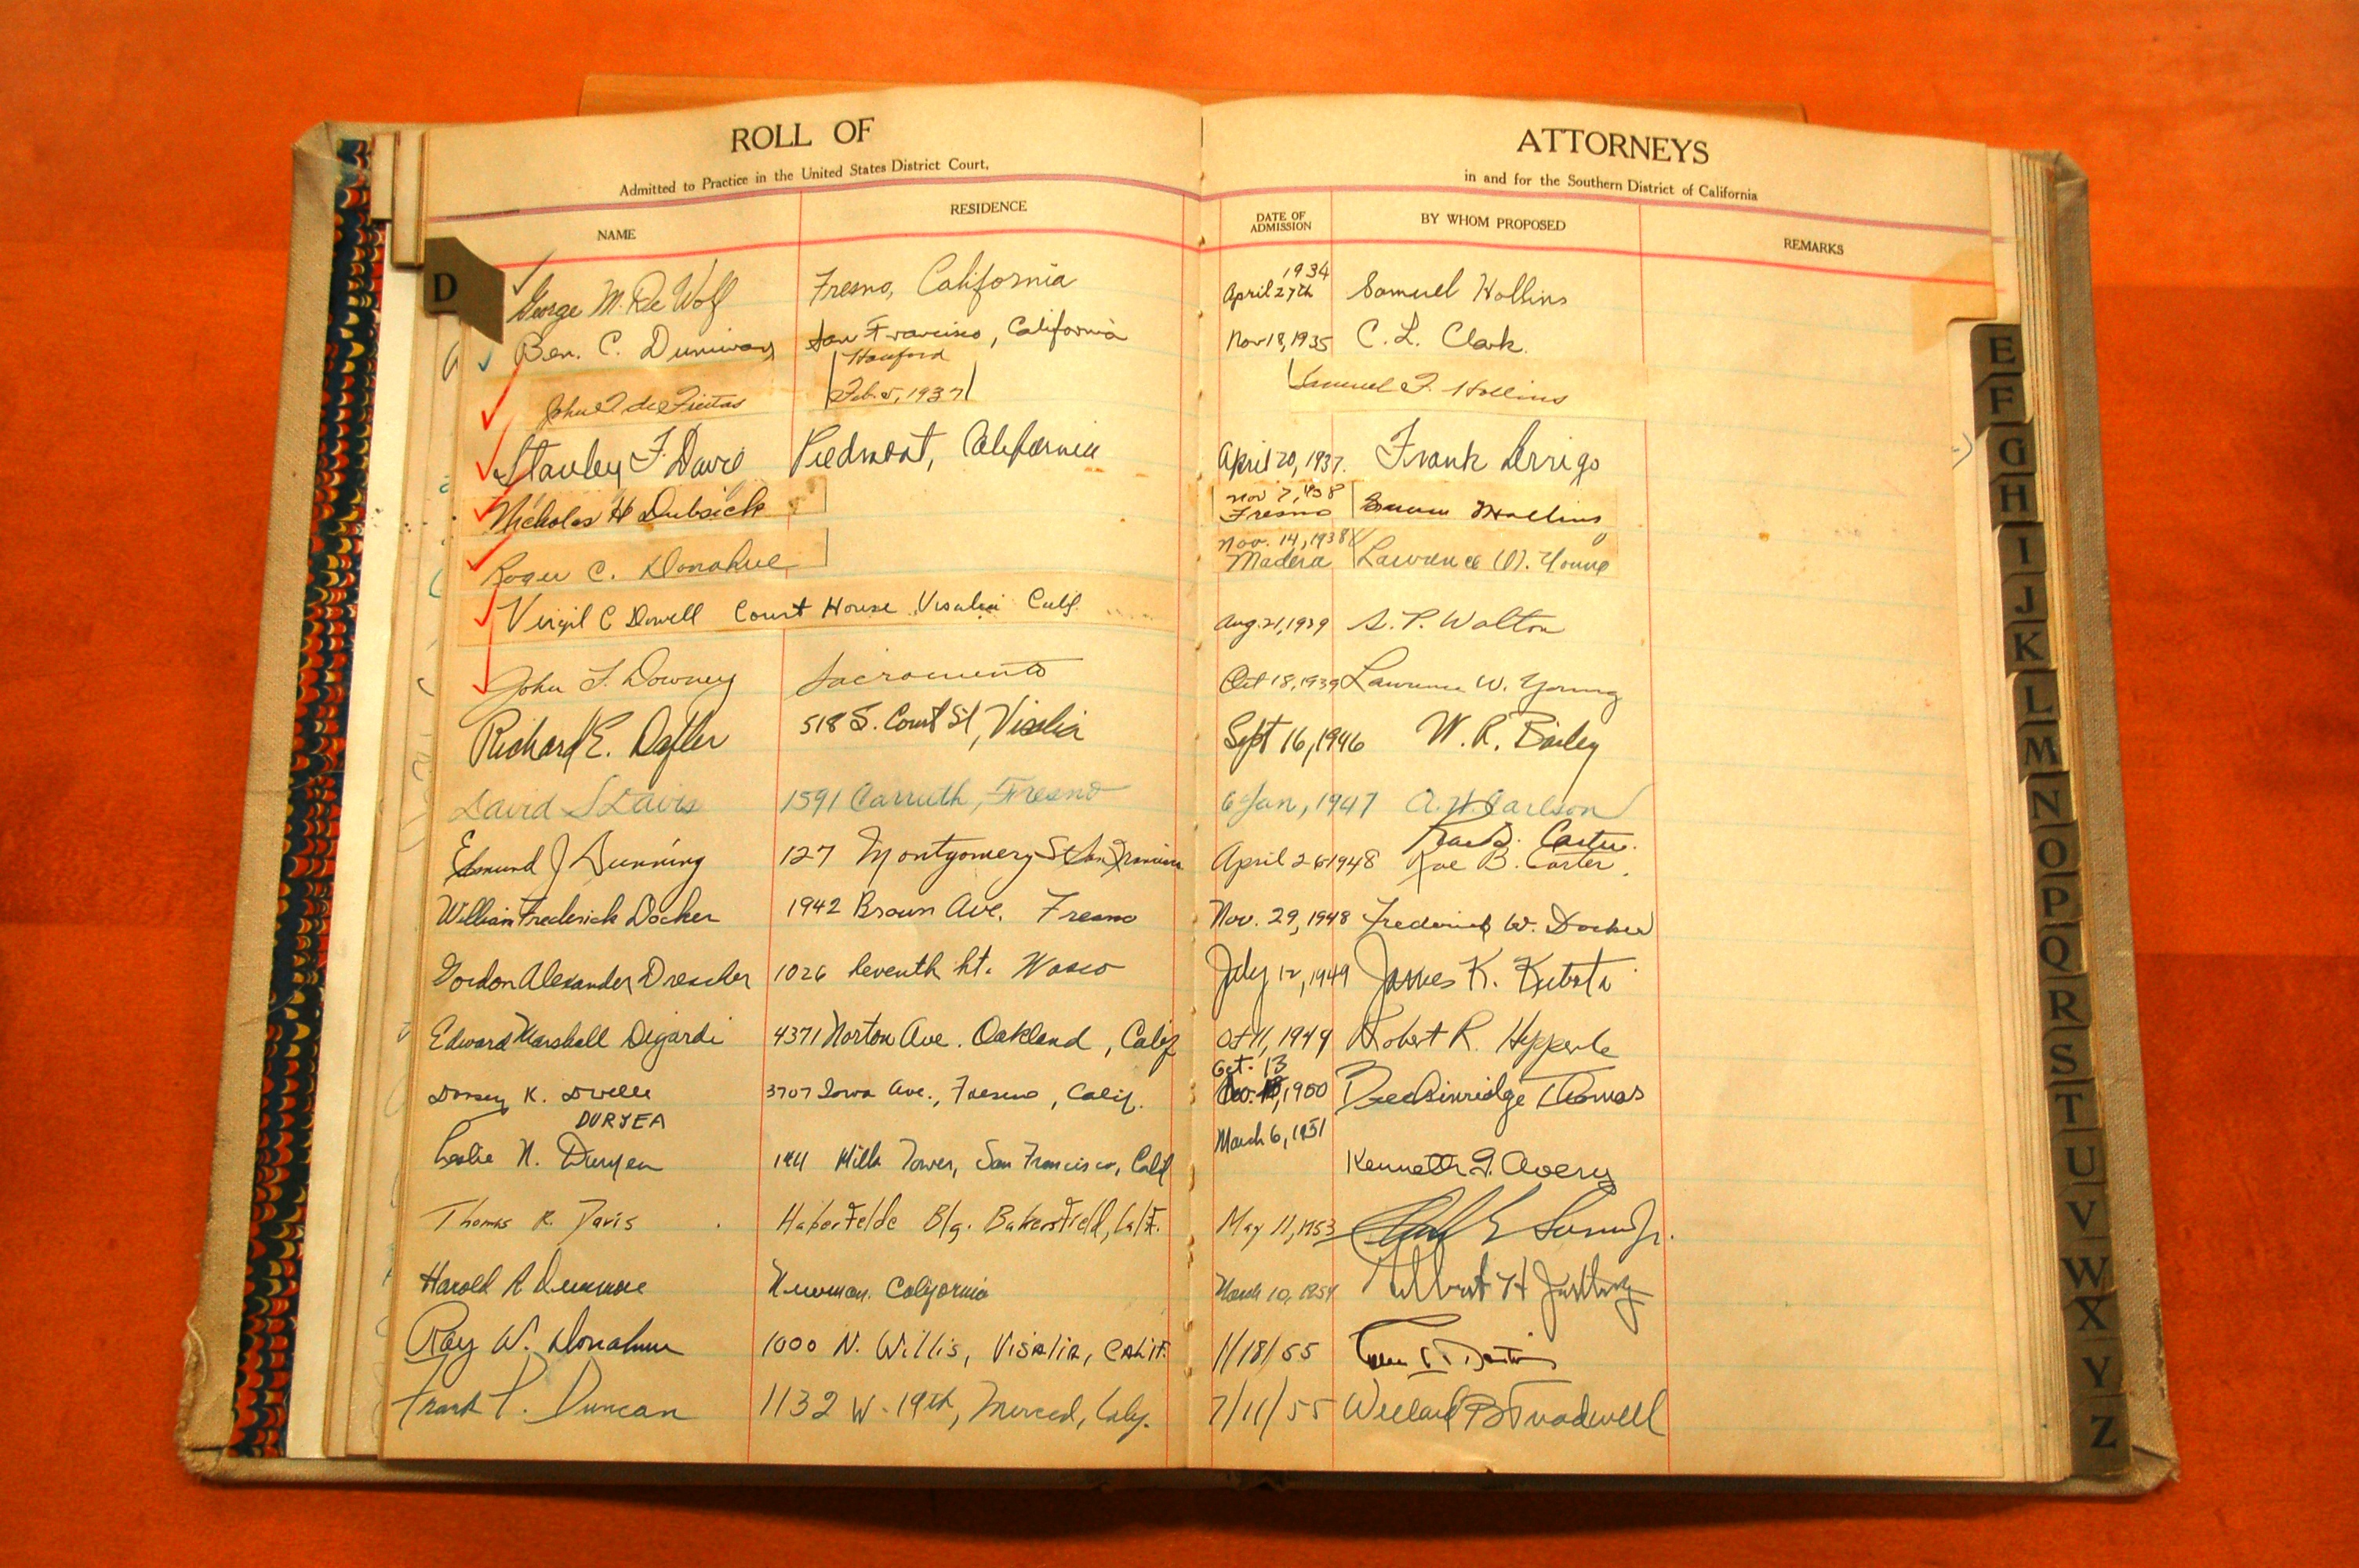 ROLL OF ATTORNEYS
Admitted to Practice in the United States District Court, in and for the Southern District of California
NAME RESIDENCE DATE OF ADMISSION BY WHOM PROPOSED REMARKS
D
1934
George M. De Wolf Fresno, California April 27th Samuel Hollins
Ben. C. Duniway San Francisco, California Nov 18, 1935 C. L. Clark.
Hanford
John T de Freitas Feb. 5, 1937 Samuel F. Hollins
Stanley F. Davie Piedmont, California April 20, 1937. Frank Arrigo
Nov 7, 1938
Nicholas H Dubsick Fresno Hollins
Nov. 14, 1938
Roger C. Donahue Madera Lawrence W. Young
Virgil C Dowell Court House Visalia Calif. Aug. 21, 1939 S. P. Walton
John F. Downey Sacramento Oct 18, 1939 Lawrence W. Young
Richard E. Dofler 518 S. Court St, Visalia Sept 16, 1946 W. R. Bailey
David S Davis 1591 Carruth, Fresno 6 Jan, 1947 A. W. Carlson
Rae B. Carter.
Edmund J Dunning 127 Montgomery St San Francisco April 26 1948 Rae B. Carter.
William Frederick Docker 1942 Brown Ave. Fresno Nov. 29, 1948 Frederick W. Docker
Gordon Alexander Drescher 1026 Seventh St. Wasco July 12, 1949 James K.
Edward Marshall Digardi 4371 Norton Ave. Oakland, Calif Oct 11, 1949 Robert R. Hepperle
Oct. 13
Dorsey K. 3707 Iowa Ave., Fresno, Calif. 1950 Breckinridge Thomas
DURYEA
Leslie N. Duryea 144 Mills Tower, San Francisco, Calif March 6, 1951 Kenneth G. Avery
Thomas R. Davis Haberfelde Blg. Bakersfield, Calif. May 11, 1953 Jr.
Harold R Newman. California March 10, 1954 H
Ray W. Donahue 1000 N. Willis, Visalia, Calif. 1/18/55
Frank P. Duncan 1132 W. 19th, Merced, Calif. 7/11/55 Willard B Treadwell
E
F
G
H
I
J
K
L
M
N
O
P
Q
R
S
T
U
V
W
X
Y
Z